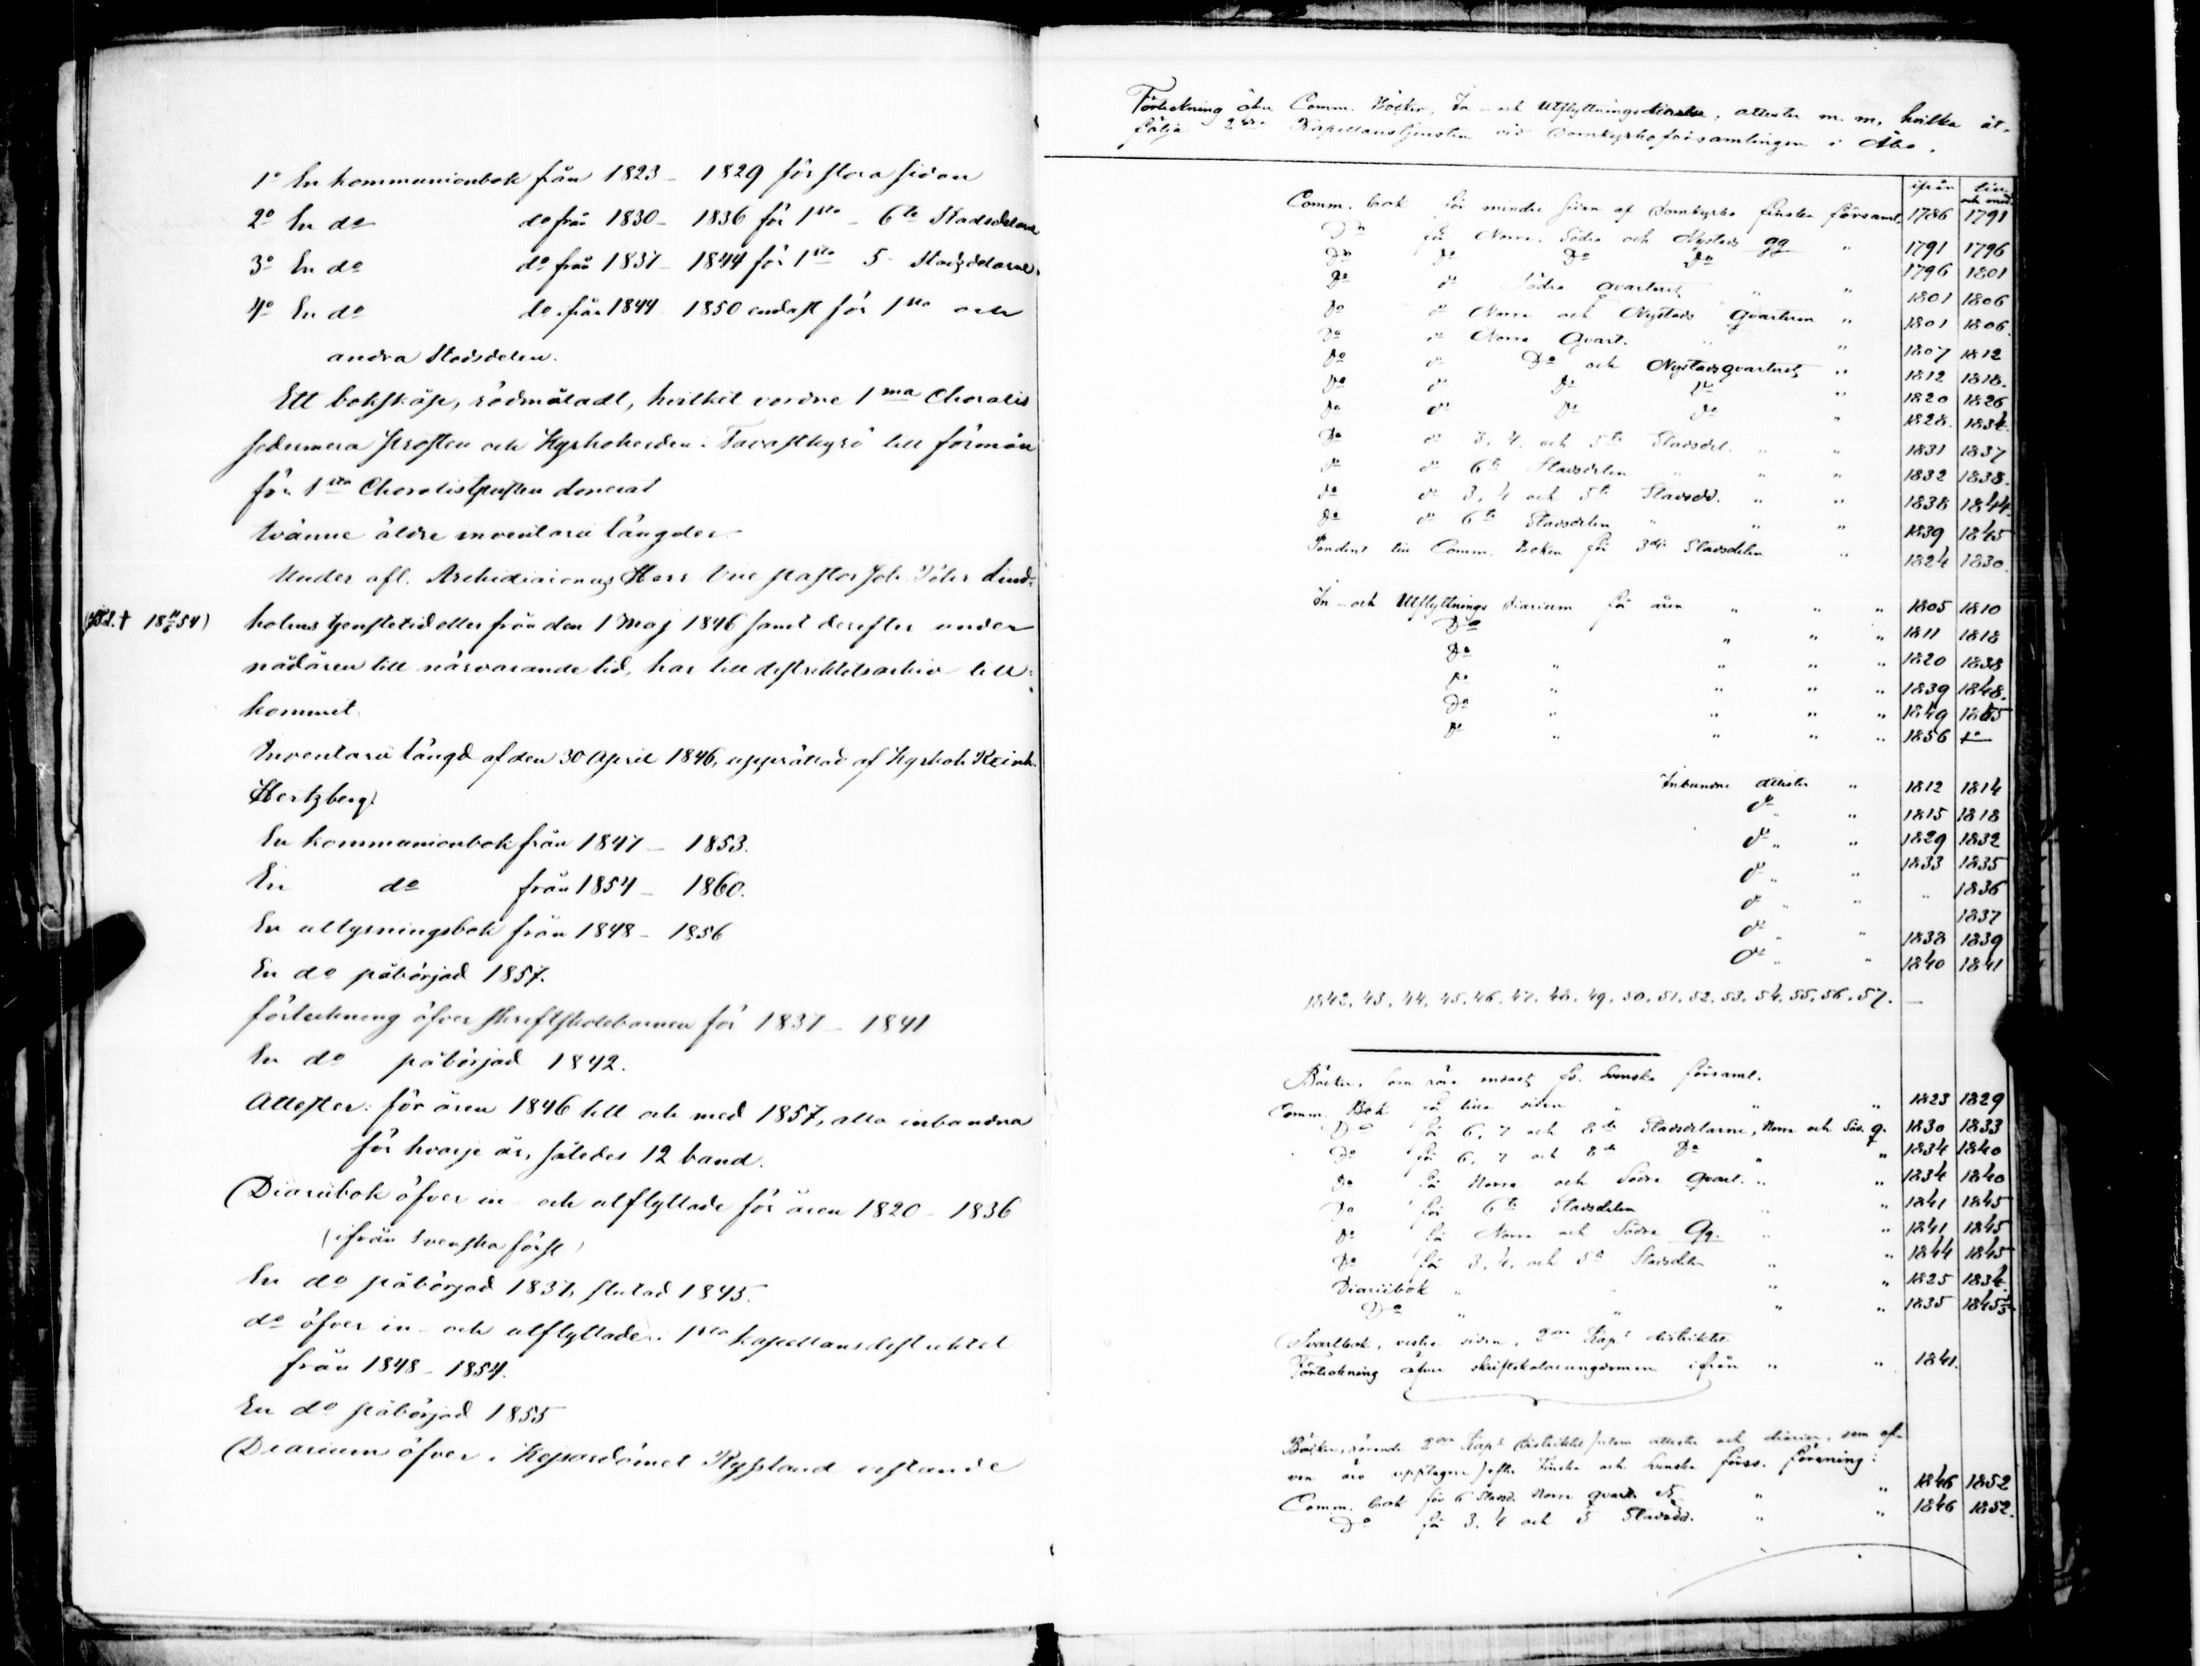 1º En kommunionbok från 1823 – 1829 för stora sidan
2º En dº dº från 1830 – 1836 för 1sta – 6te Stadsdelarne
3º En dº dº från 1837 – 1844 för 1sta 5 Stadsdelarne.
4º En dº dº från 1844 1850 endast för 1sta och
andra Stadsdelen.
Ett bokskåp, rödmåladt, hvilket vordne 1ma Choralis
sedermera Prosten och Kyrkoherden i Tavastkyrö till förmån
för 1sta Choralistjensten donerat
tvänne äldre inventarii längder
Under afl. Archidiaconus Herr Vice pastor Joh. Peter Lind-
(† 18 54)
holms tjenstetid eller från den 1 Maj 1846 samt derefter under
nådåren till närvarande tid, har till distriktets arkiv till-
kommit.
Inventarii längd af den 30 April 1846, upprättad af Kyrkoh. Reinh.
Hertzberg.
En kommunionbok från 1847 – 1853.
En dº från 1854 – 1860.
En utlysningsbok från 1848 – 1856
En dº påbörjad 1857.
förteckning öfver skriftskolebarnen för 1837 – 1841
En dº påbörjad 1842.
Attester: för åren 1846 till och med 1857, alla inbundna
för hvarje år, således 12 band.
Diariibok öfver in- och utflyttade för åren 1820 – 1836
(ifrån Svenska förs.)
En dº påbörjad 1837, slutad 1845.
dº öfver in- och utflyttade i 1sta Kapellansdistriktet
från 1848 – 1854.
En dº påbörjad 1855
Diarium öfver i Kejsardömet Ryssland vistande
Förteckning öfver Comm. Böcker, In- och Utflyttningsdiarier, attester m. m, hvilka åt-
följa 2dra Kapellanstjensten vid Domkyrkoförsamlingen i Åbo.
ifrån till och med
Comm. bok för mindre sidan af Domkyrko finska församl. 1786 1791
Dº för Norra, Södra och Nystads qq " 1791 1796
Dº dº Dº Dº 1796 1801
Dº dº Södra qvarteret " " 1801 1806
Dº dº Norra och Nystads Qvarteren " 1801 1806.
Dº dº Norra Qvart. " " 1807 1812
Dº dº Dº och Nystadsqvarteret " 1812 1818.
Dº dº Dº Dº " 1820 1826
Dº dº Dº Dº " 1828. 1834.
Dº dº 3, 4. och 5te Stadsdel. " " 1831 1837
Dº dº 6te Stadsdelen " " 1832 1838.
Dº dº 3, 4 och 5te Stadsdd. " " 1838 1844.
Dº dº 6te Stadsdelen " " " 1839 1845
Pendent till Comm. Boken för 3dje Stadsdelen " 1824 1830.
In- och Utflyttnings diarium för åren " " " 1805 1810
Dº " " " 1811 1818
Dº " " " " 1820 1838
Dº " " " " 1839 1848.
Dº " " " " 1849 1855
Dº " " " " 1856
Inbundne attester " 1812 1814
dº " " 1815 1818
dº " " 1829 1832
dº " " 1833 1835
dº " " " 1836
dº " " 1837
dº " " 1838 1839
dº " " 1840 1841
1842. 43. 44. 45. 46. 47. 48. 49. 50. 51. 52. 53. 54. 55. 56. 57. —
Böcker, som röra endast f.d. Svenska församl.
Comm. Bok för lilla sidan " " " 1823 1829
Dº för 6, 7 och 8de Stadsdelarne, Norra och Söd. q. 1830 1833
Dº för 6, 7 och 8de Dº " " 1834 1840
Dº för Norra och Södra Qvart. " " 1834 1840
Dº för 6te Stadsdelen " " 1841 1845
Dº för Norra och Södra Qq. " " 1841 1845
Dº för 3, 4, och 5te Stadsdelen " " 1844 1845
Diariibok " " " " 1825 1834.
Dº " " " " 1835 1845
Svartbok, vestra sidan, 2dra Kaps distriktet
Förteckning öfver skriftskoleungdomen ifrån " " 1841.
Böcker, rörande 2dra Kaps distriktet utom attester och diarier, som of-
van äro upptagne, efter Finska och Svenska förss. förening:
Comm. bok för 6 Stadsd. Norra qvart. " " 1846 1852
Dº för 3. 4 och 5 Stadsdd. " " 1846 1852.